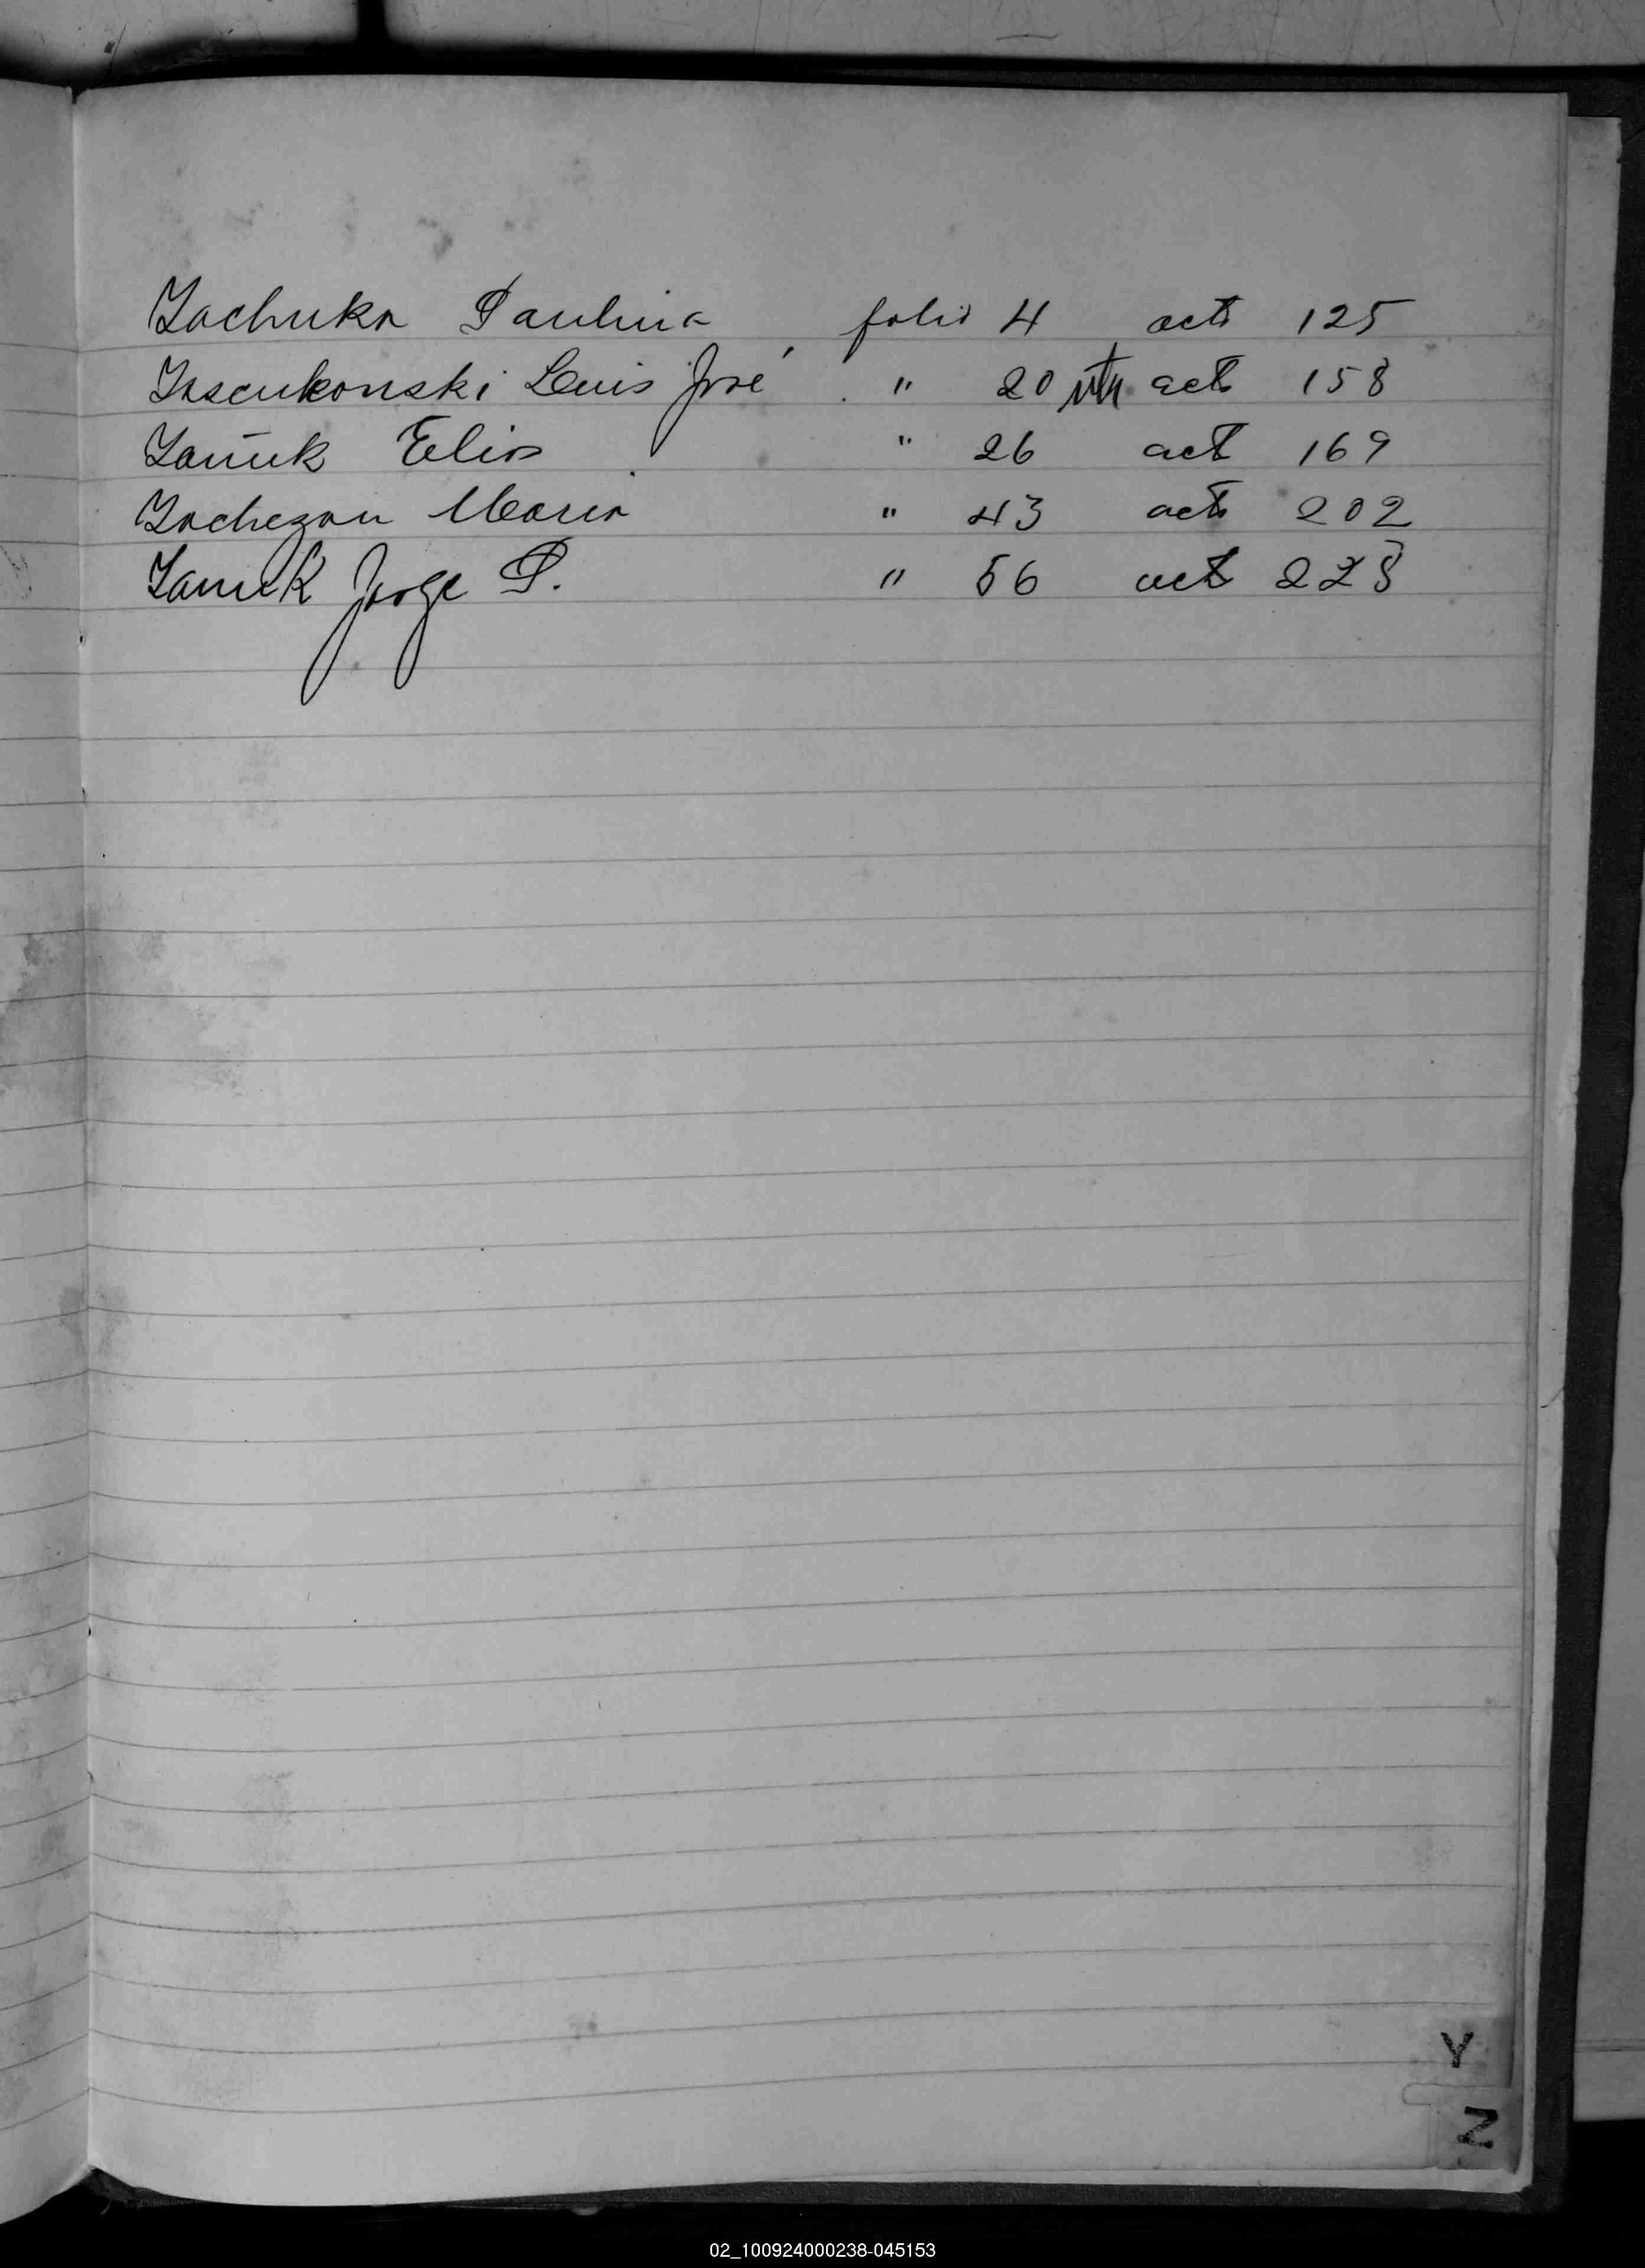 Yachuka Paulina folio 4 acta 125
Yascukonski Luis José " 20 vta acta 158
Yanuk Elias " 26 acta 169
Yachezan Maria " 43 acta 202
Yanuk Jorge P. " 56 acta 228
Y
Z
02_100924000238-045153